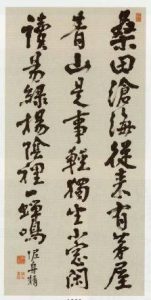 桑田滄海從来有茅屋
青山是事輕獨坐小窓閑
讀易緑楊陰裡一蟬鳴